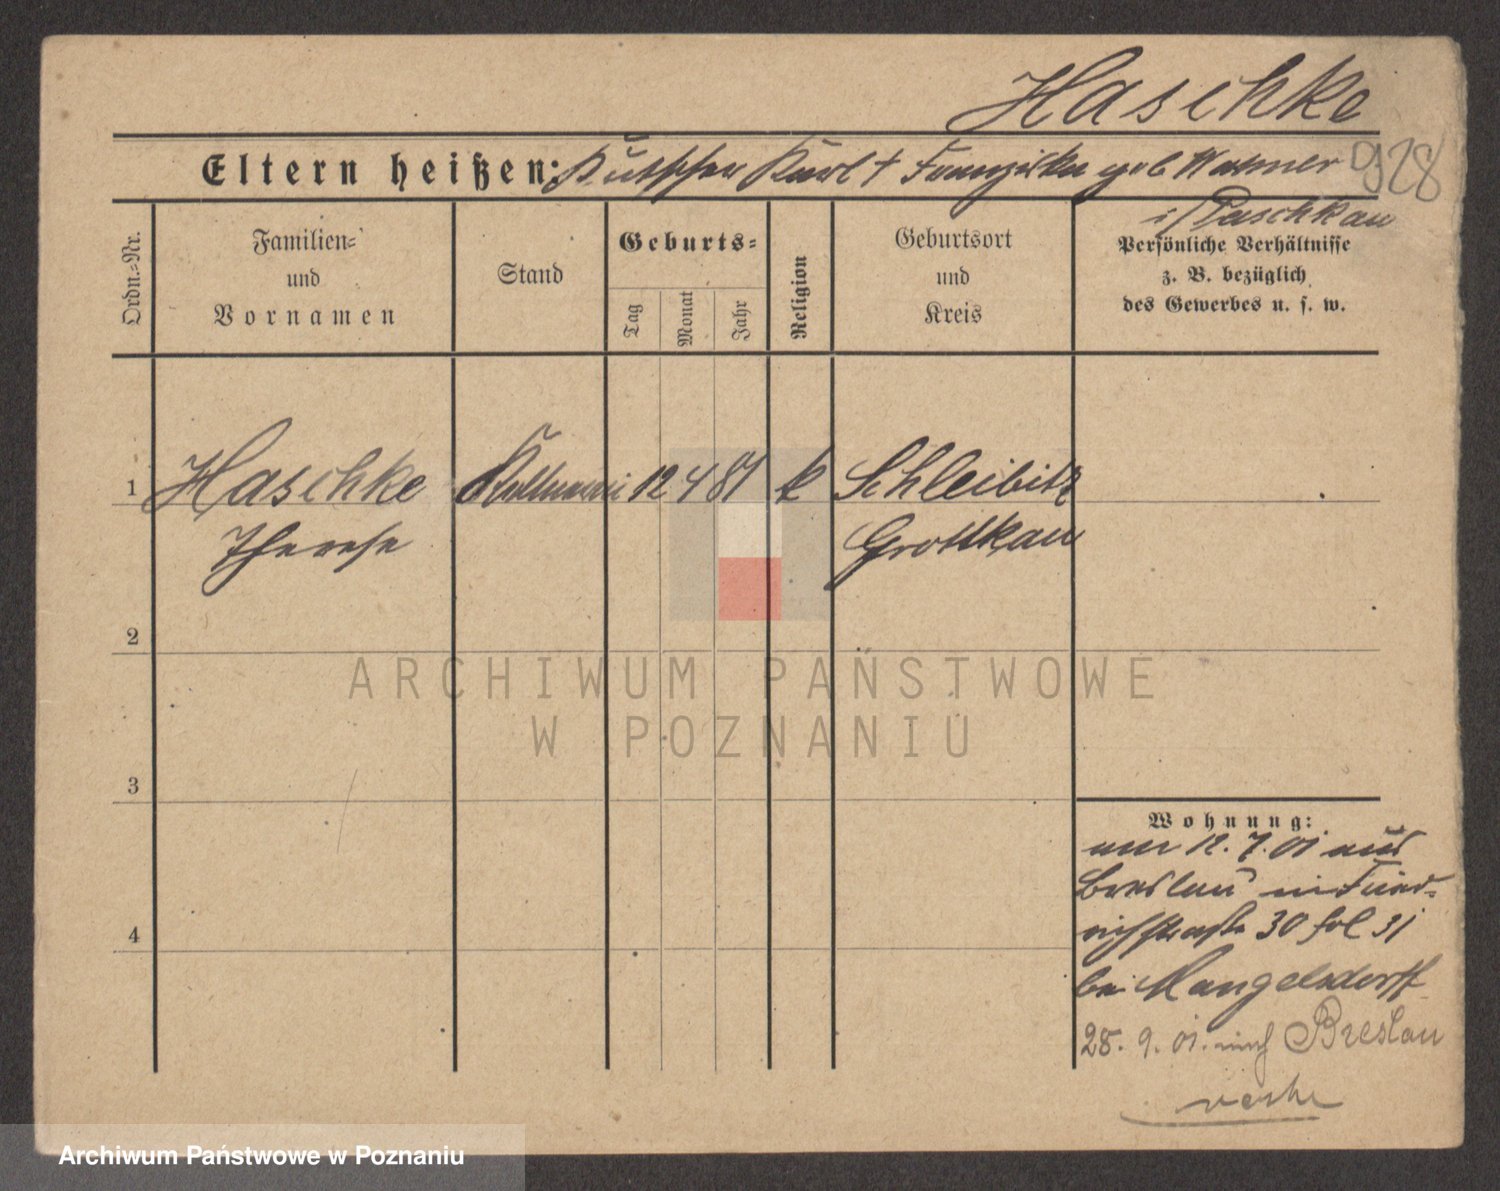 Haschke
Eltern heißen: Kutscher Karl † Franziska geb Warmer
928
i/ Patschkau
Ordn.=Nr.
Familien=
und
Vornamen
Stand
Geburts=
Tag
Monat
Jahr
Religion
Geburtsort
und
Kreis
Persönliche Verhältnisse
z. B. bezüglich
des Gewerbes u. s. w.
1 Haschke 12 4 81 k Schleibitz
Therese Grottkau
2
3
4
ARCHIWUM PAŃSTWOWE
W POZNANIU
Wohnung:
am 12. 7. 01 aus
Breslau in Fried=
richstraße 30 fol 31
bei Mangelsdorff
28. 9. 01. nach Breslau
Archiwum Państwowe w Poznaniu